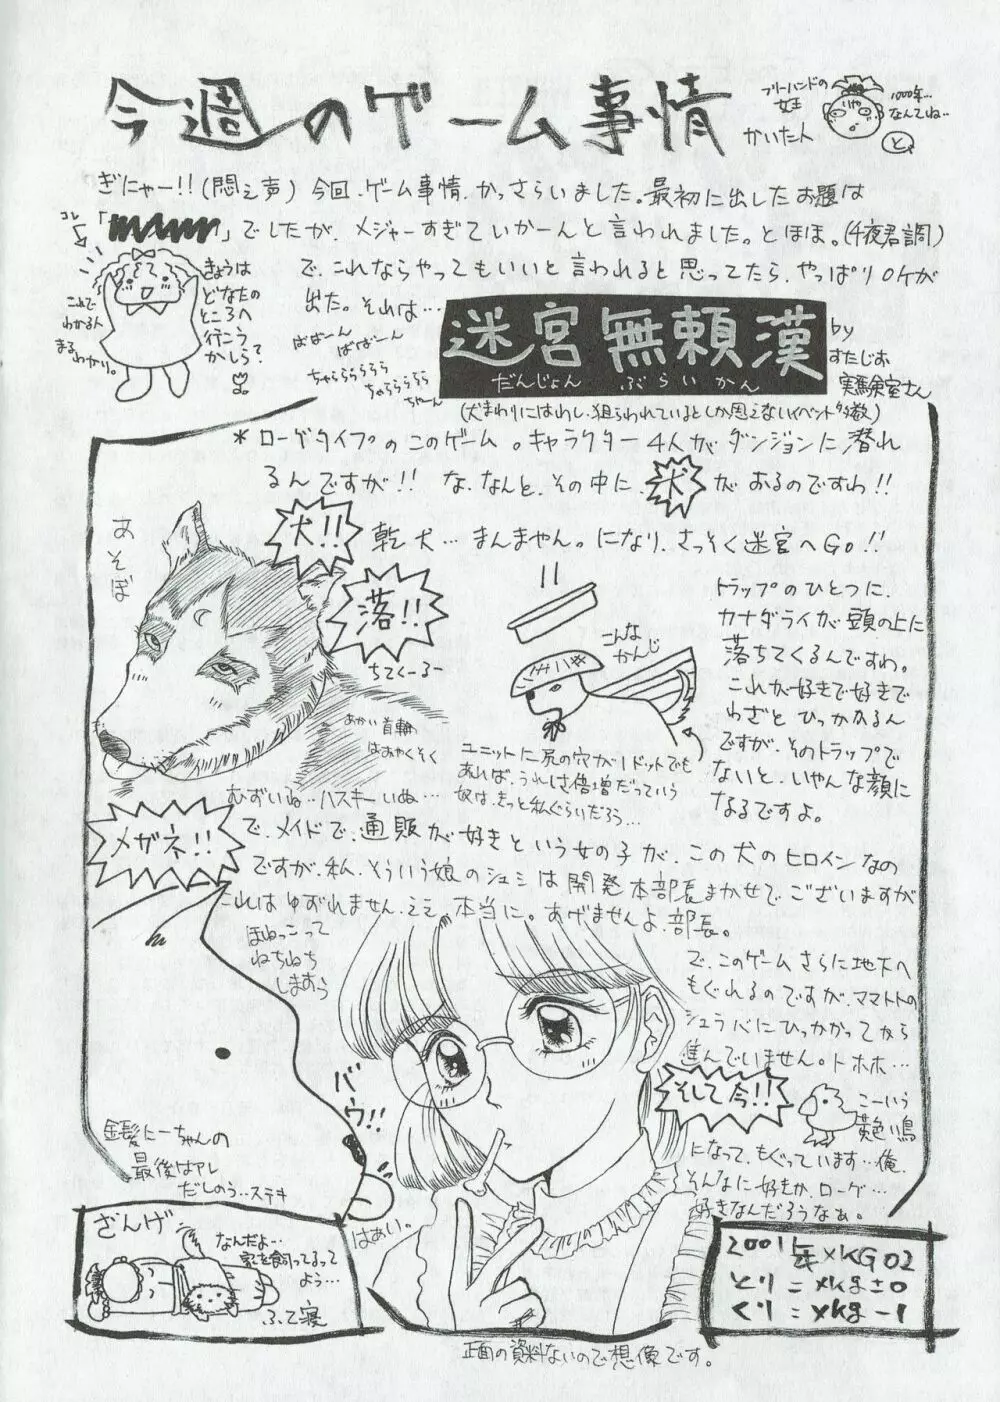 今週のゲーム事情
フリーハンドの
女王
かいた人
1000年…
なんてね…
と
ぎにゃー!!(悶え声) 今回、ゲーム事情、かっさらいました。最初に出したお題は
「　　」でしたが、メジャーすぎていかーんと言われました。とほほ。(千夜君調)
コレ
で、これならやってもいいと言われると思ってたら、やっぱりOKが
出た。それは…
きょうは
どなたの
ところへ
行こう
かしら?
これで
わかる人
まる
わかり。
ばばーん
ばばーん
ちゃららららら
ちゅららららら
ちゃーん
迷宮無頼漢
だんじょん ぶらいかん
by
すたじお
実験室さん
(犬まわりにはわし、狙らわれているとしか思えないイベント多数)
*ローグタイプのこのゲーム。キャラクター4人がダンジョンに潜れ
るんですが!! な、なんと、その中に、犬がおるのですわ!!
犬!! 乾犬…まんまやん。になり、さっそく迷宮へGO!!
あそぼ
落!!
ちてくーるー
こんな
かんじ
トラップのひとつに、
カナダライが頭の上に
落ちてくるんですわ。
これが好きで好きで
わざとひっかかるん
ですが、そのトラップで
ないと、いやんな顔に
なるですよ。
あかい首輪
はおやくそく
ユニットに尻の穴が1ドットでも
あれば、うれしさ倍増だっていう
奴は、きっと私ぐらいだろう…
むずいね…ハスキーいぬ…
メガネ!!
で、メイドで、通販が好きという女の子が、この犬のヒロインなの
ですが、私、そういう娘のシュミは開発本部長まかせで、ございますが
これはゆずれません、ええ、本当に。あげませんよ、部長。
ほねっこって
ねちねち
しますう
で、このゲームさらに地下へ
もぐれるのですが、ママトトの
シュラバにひっかかってから
進んでいません。トホホ…
そして今!!
こーいう
黄色い鳥
になって、もぐっています…俺、
そんなに好きか、ローグ…
好きなんだろうなぁ。
バウ!!
金髪にーちゃんの
最後はアレ
だしのう…ステキ
はぁい。
ざんげ
なんだよ…
家を飼ってるって
よう…
ふて寝
2001年×KG02
とり=×kg±0
くり=×kg-1
正面の資料ないので想像です。